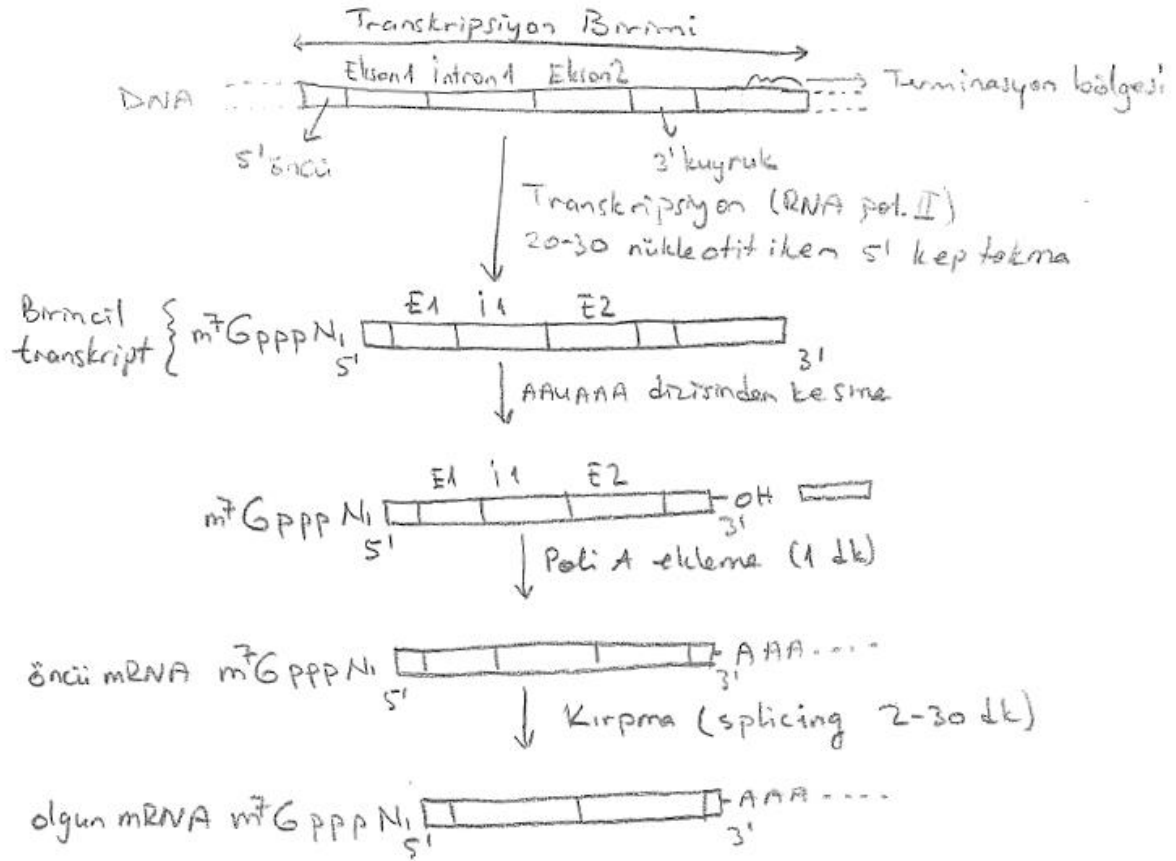 Transkripsiyon Birimi
Ekson1 intron1 Ekson2
DNA
Terminasyon bölgesi
5' öncü
3' kuyruk
Transkripsiyon (RNA pol. II)
20-30 nükleotit iken 5' kep takma
E1 i1 E2
Birincil
transkript
m⁷GpppN₁
5'
3'
AAUAAA dizisinden kesme
E1 i1 E2
m⁷GpppN₁
OH
5'
3'
Poli A ekleme (1 dk)
öncü mRNA m⁷GpppN₁
AAA....
5'
3'
Kırpma (splicing 2-30 dk)
olgun mRNA m⁷GpppN₁
AAA....
5'
3'